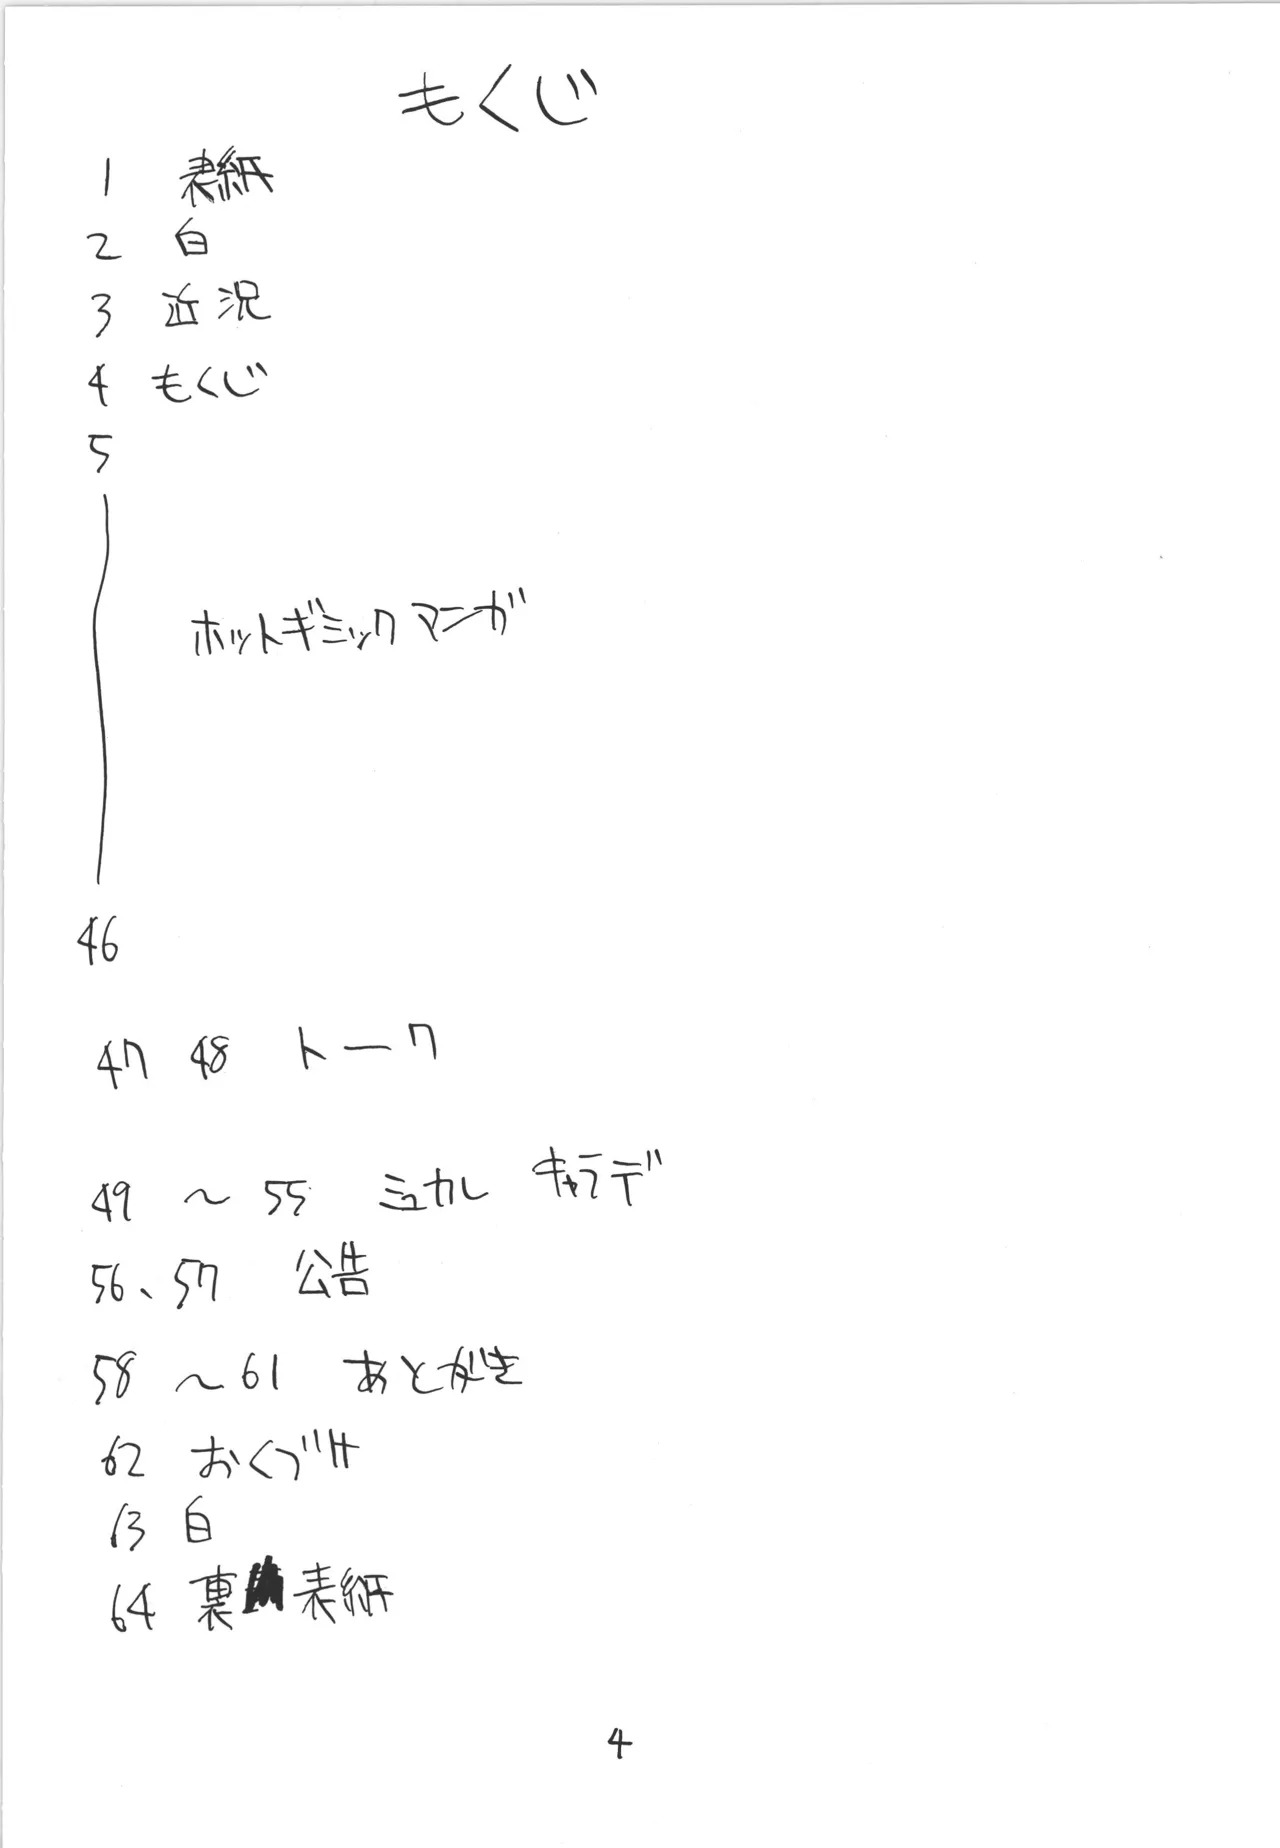 もくじ
1 表紙
2 白
3 近況
4 もくじ
5
ホットギミックマンガ
46
47 48 トーク
49 ～ 55 ミュカレ キャラデ
56、57 公告
58 ～61 あとがき
62 おくづけ
63 白
64 裏表紙
4